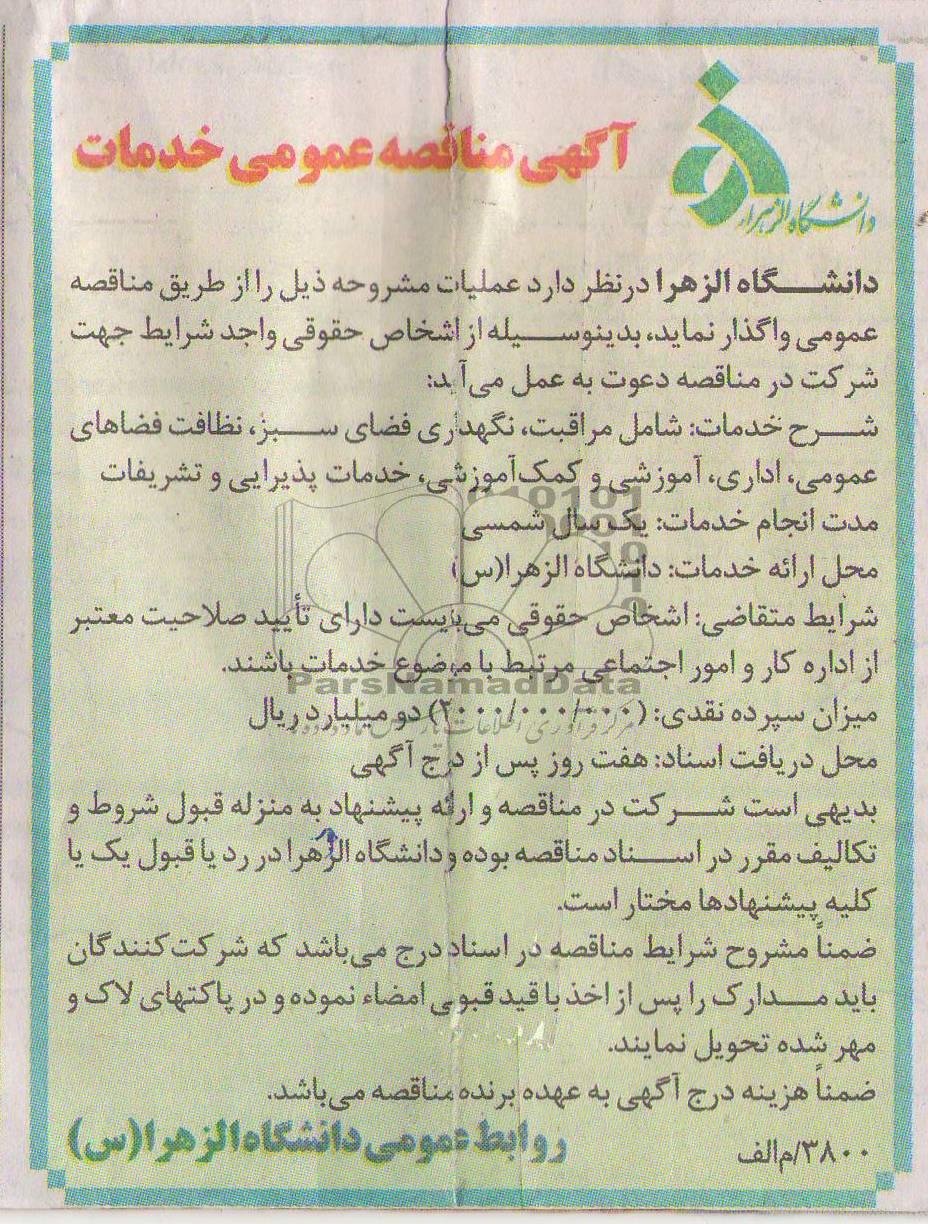 دانشگاه الزهرا
آگهی مناقصه عمومی خدمات
دانشگاه الزهرا درنظر دارد عملیات مشروحه ذیل را از طریق مناقصه
عمومی واگذار نماید، بدینوسیله از اشخاص حقوقی واجد شرایط جهت
شرکت در مناقصه دعوت به عمل می‌آید:
شرح خدمات: شامل مراقبت، نگهداری فضای سبز، نظافت فضاهای
عمومی، اداری، آموزشی و کمک‌آموزشی، خدمات پذیرایی و تشریفات
مدت انجام خدمات: یک سال شمسی
محل ارائه خدمات: دانشگاه الزهرا(س)
شرایط متقاضی: اشخاص حقوقی می‌بایست دارای تأیید صلاحیت معتبر
از اداره کار و امور اجتماعی مرتبط با موضوع خدمات باشند.
ParsNamadData
میزان سپرده نقدی: (۲۰۰۰/۰۰۰/۰۰۰) دو میلیارد ریال
محل دریافت اسناد: هفت روز پس از درج آگهی
بدیهی است شرکت در مناقصه و ارائه پیشنهاد به منزله قبول شروط و
تکالیف مقرر در اسناد مناقصه بوده و دانشگاه الزهرا در رد یا قبول یک یا
کلیه پیشنهادها مختار است.
ضمناً مشروح شرایط مناقصه در اسناد درج می‌باشد که شرکت‌کنندگان
باید مدارک را پس از اخذ با قید قبولی امضاء نموده و در پاکتهای لاک و
مهر شده تحویل نمایند.
ضمناً هزینه درج آگهی به عهده برنده مناقصه می‌باشد.
روابط عمومی دانشگاه الزهرا(س)
۳۸۰۰/م‌الف